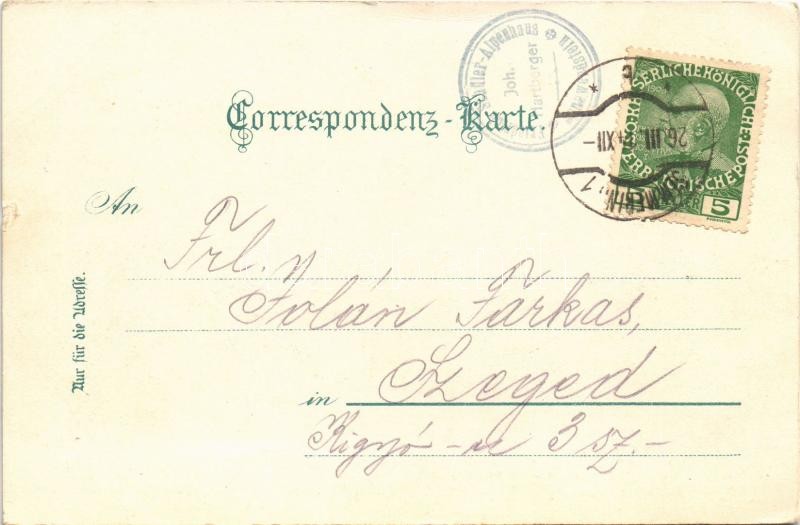 Correspondenz-Karte.
Alpenhaus
Joh.
KAISERLICHE KÖNIGLICHE
ÖSTERREICHISCHE POST
5
26.III
XII
1
An
Frl.
Jolán Farkas,
in Szeged
Kigyó-u 3 sz.-
Nur für die Adresse.